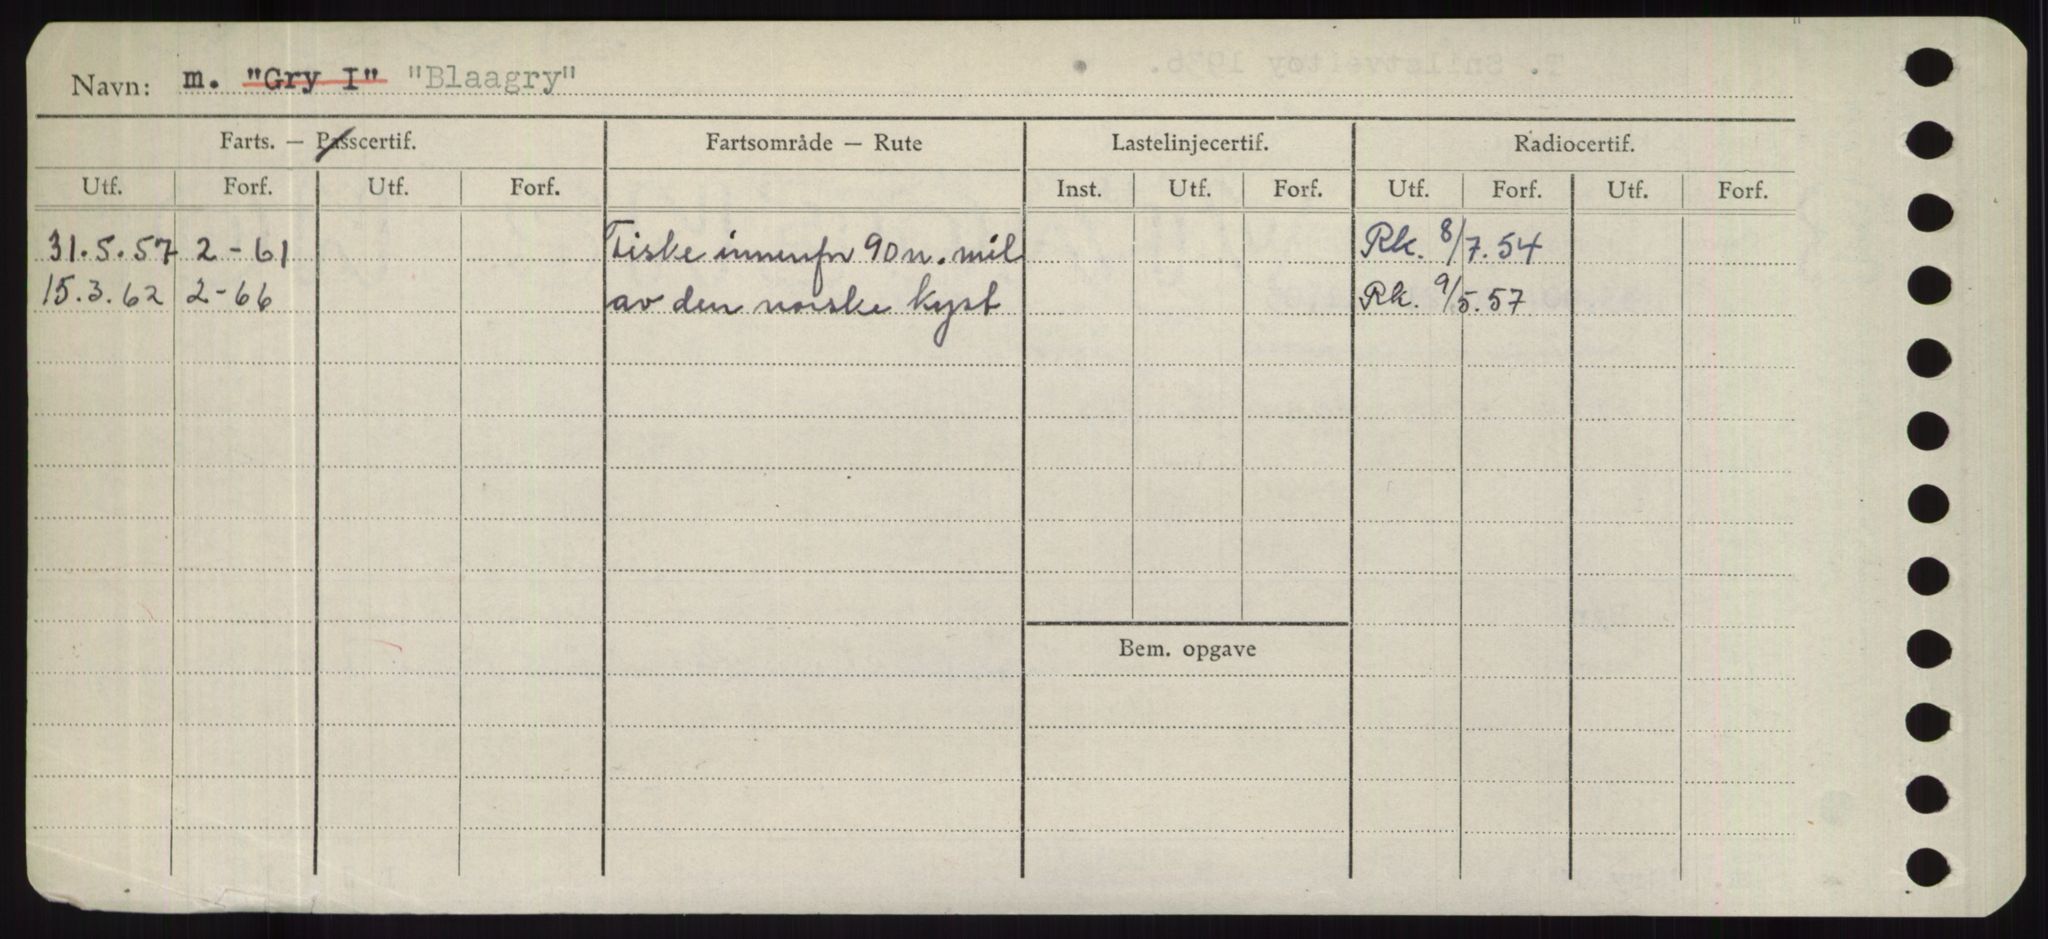 Navn: m. "Gry I" "Blaagry"
Farts. — Passcertif. Fartsområde — Rute Lastelinjecertif. Radiocertif.
Utf. Forf. Utf. Forf. Inst. Utf. Forf. Utf. Forf. Utf. Forf.
31.5.57 2-61 Fiske innenfr 90 n. mil Rk. 8/7.54
15.3.62 2-66 av den norske kyst Rk. 9/5.57
Bem. opgave